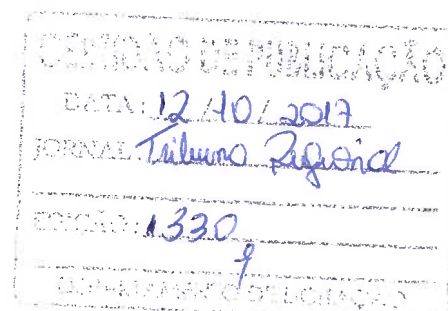 CERTIDÃO DE PUBLICAÇÃO
DATA: 12 / 10 / 2017
JORNAL: Tribuna Regional
EDIÇÃO: 1330
DEPARTAMENTO DE